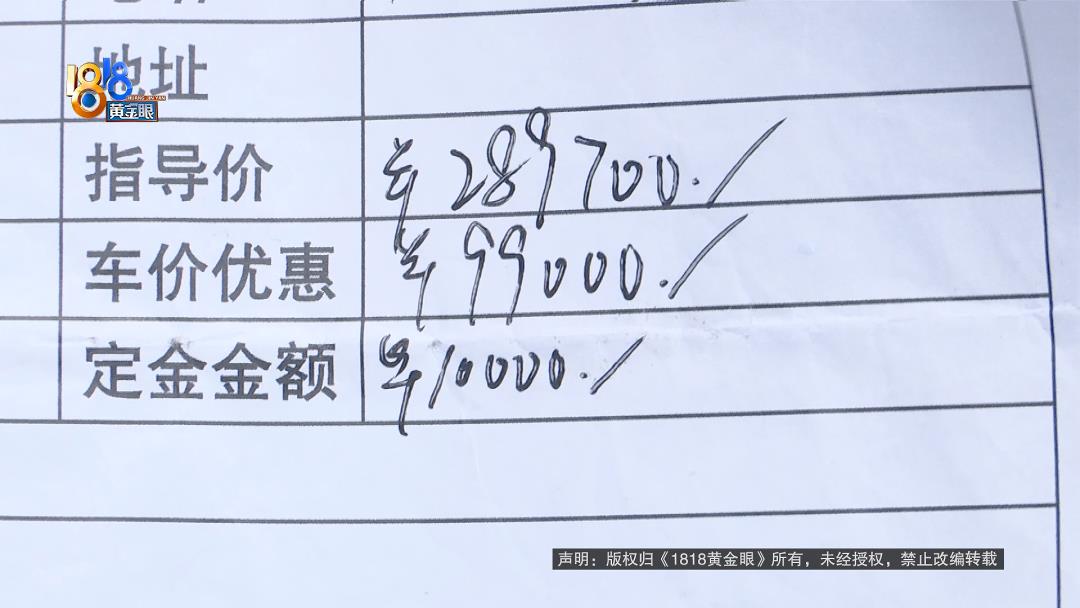 地址
1818
HUANG JIN YAN
黄金眼
指导价 ¥289700./
车价优惠 ¥99000./
定金金额 ¥10000./
声明：版权归《1818黄金眼》所有，未经授权，禁止改编转载